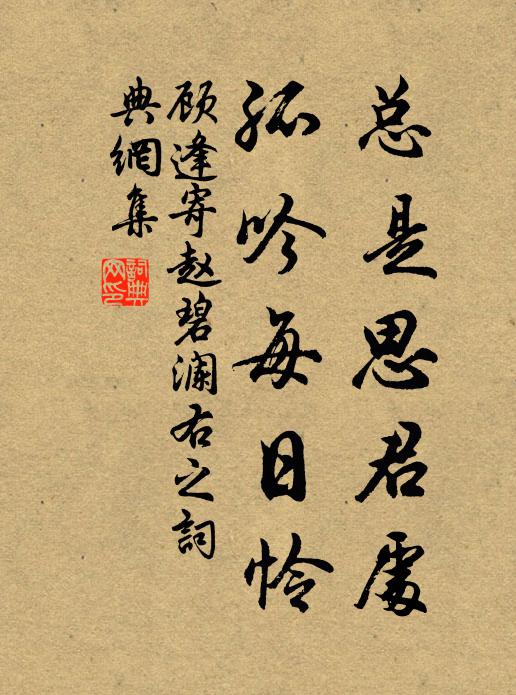 总是思君处
孤吟每日怜
顾逢寄赵碧澜右之詞
典網集
詞典
网印